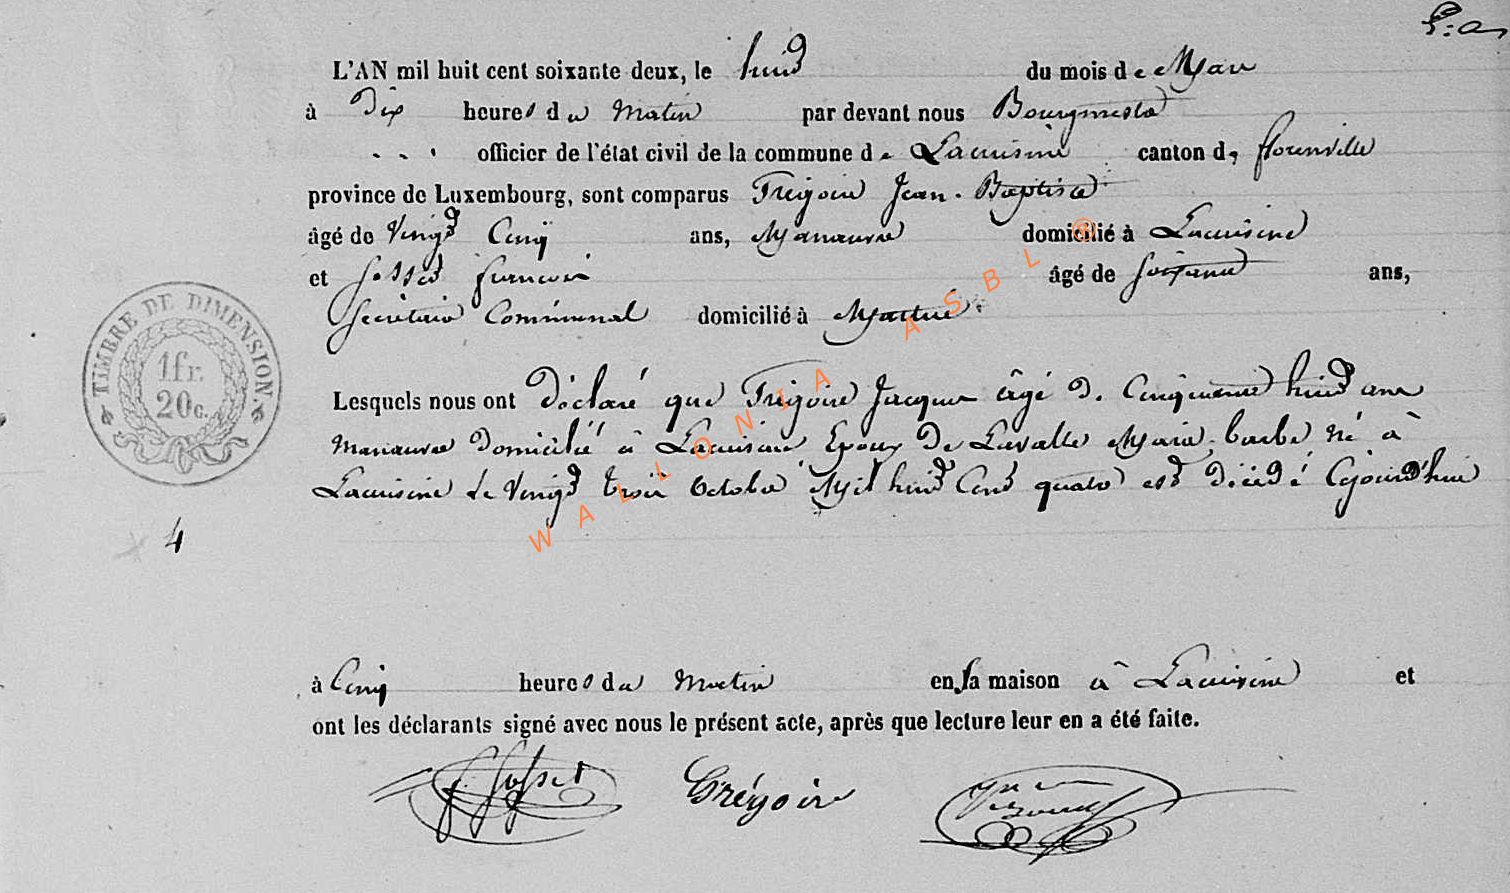 L'AN mil huit cent soixante deux, le huit du mois de Mars
à Dix heures du Matin par devant nous Bourgmestre
officier de l'état civil de la commune de Lacuisine canton de florenville
province de Luxembourg, sont comparus Trégoire Jean-Baptiste
âgé de Vingt Cinq ans, Manœuvre domicilié à Lacuisine
et Gosset françois âgé de Soixante ans,
Secrétaire Communal domicilié à Martué
TIMBRE DE DIMENSION.
1 fr.
20 c.
Lesquels nous ont déclaré que Trégoire Jacques âgé de Cinquante huit ans
Manœuvre domicilié à Lacuisine Epoux de Lavalle Marie barbe né à
Lacuisine le Vingt trois Octobre Mil huit Cent quatre est décédé Cejourd'hui
4
à Cinq heures du Matin en sa maison à Lacuisine et
ont les déclarants signé avec nous le présent acte, après que lecture leur en a été faite.
f. Gosset Grégoire
WALLONIA ASBL ®